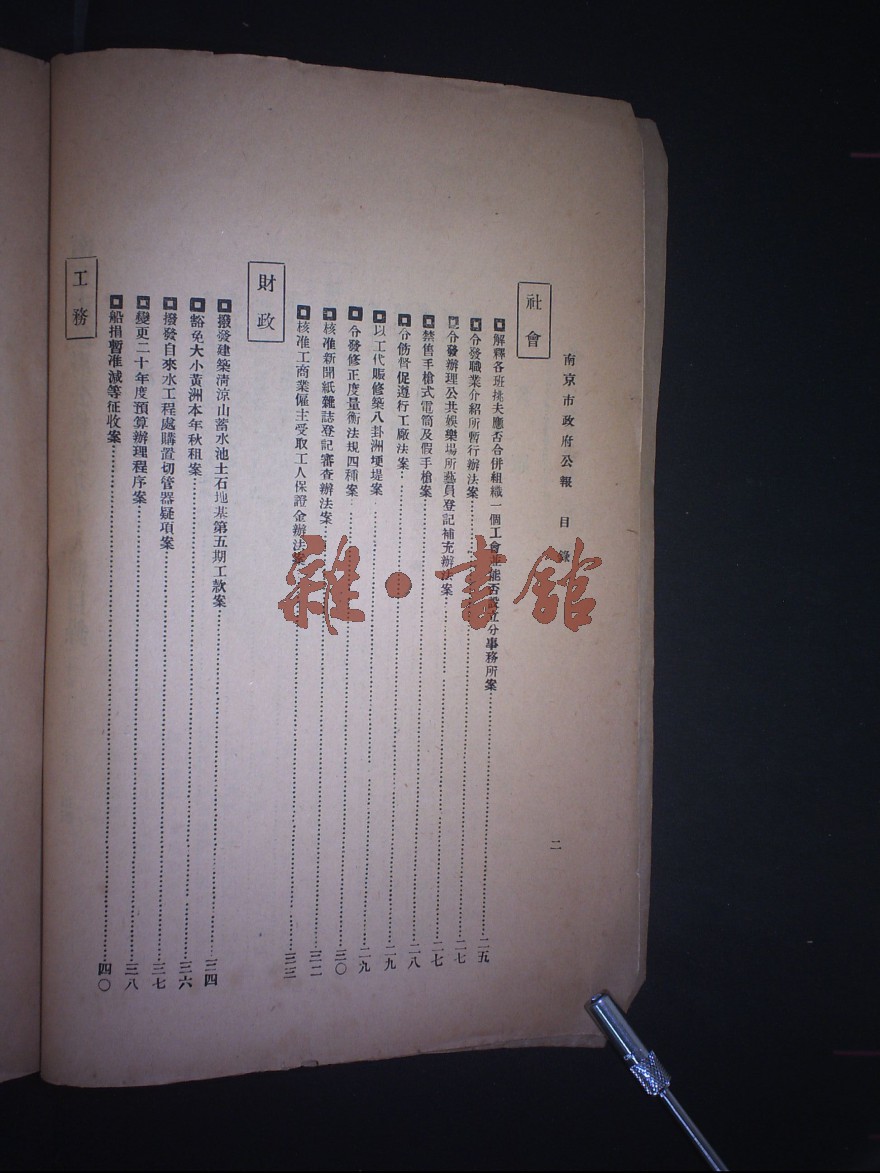 南京市政府公報 目錄 二
社會
解釋各班挑夫應否合併組織一個工會並能否設立分事務所案 二五
令發職業介紹所暫行辦法案 二七
令發辦理公共娛樂場所藝員登記補充辦法案 二七
禁售手槍式電筒及假手槍案 二八
令飭督促遵行工廠法案 二九
以工代賑修築八卦洲埂堤案 二九
令發修正度量衡法規四種案 三〇
核准新聞紙雜誌登記審查辦法案 三二
核准工商業僱主受取工人保證金辦法案 三三
財政
撥發建築淸涼山蓄水池土石地基第五期工款案 三四
豁免大小黃洲本年秋租案 三六
撥發自來水工程處購置切管器疑項案 三七
變更二十年度預算辦理程序案 三八
船捐暫准減等征收案 四〇
工務
雜·書館